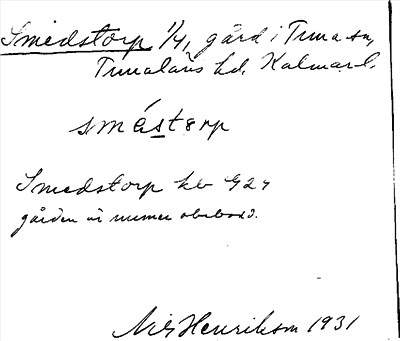 Smedstorp 1/4, gård i Tuna sn,
Tunaläns hd. Kalmar l.
sméstɛrp
Smedstorp kb G24
gården är numer obebodd.
Nils Henrikson 1931